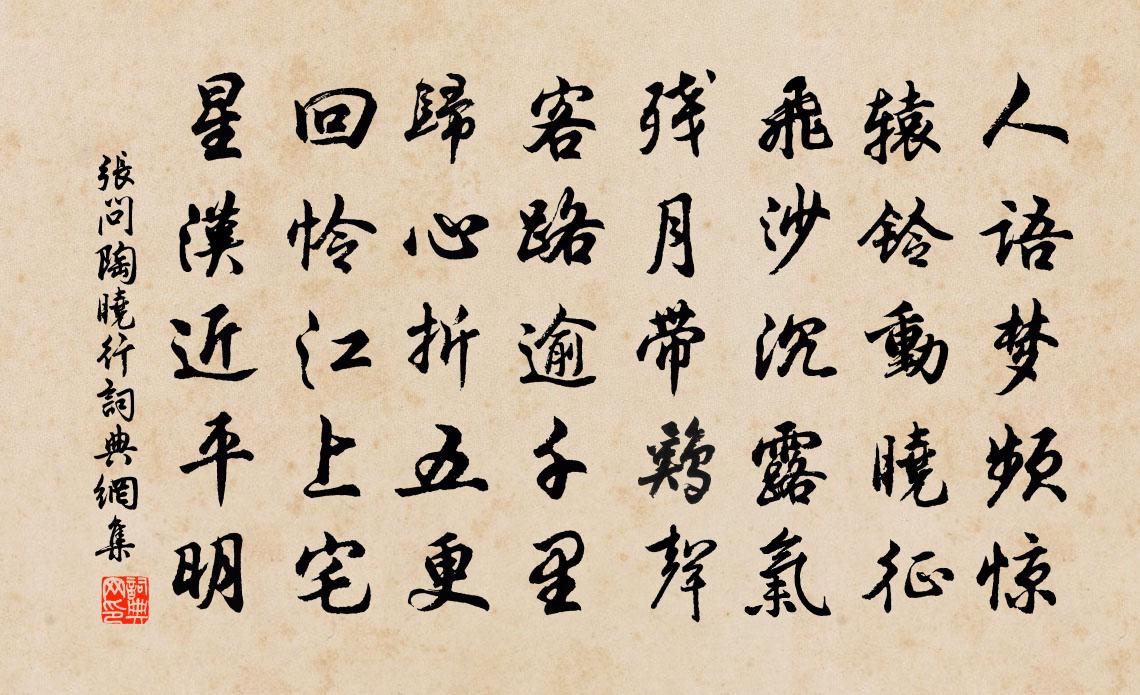 人语梦频惊
辕鈴動曉征
飛沙沉露氣
残月带鷄聲
客路逾千里
歸心折五更
回怜江上宅
星漢近平明
張問陶曉行詞典網集
詞典
网印